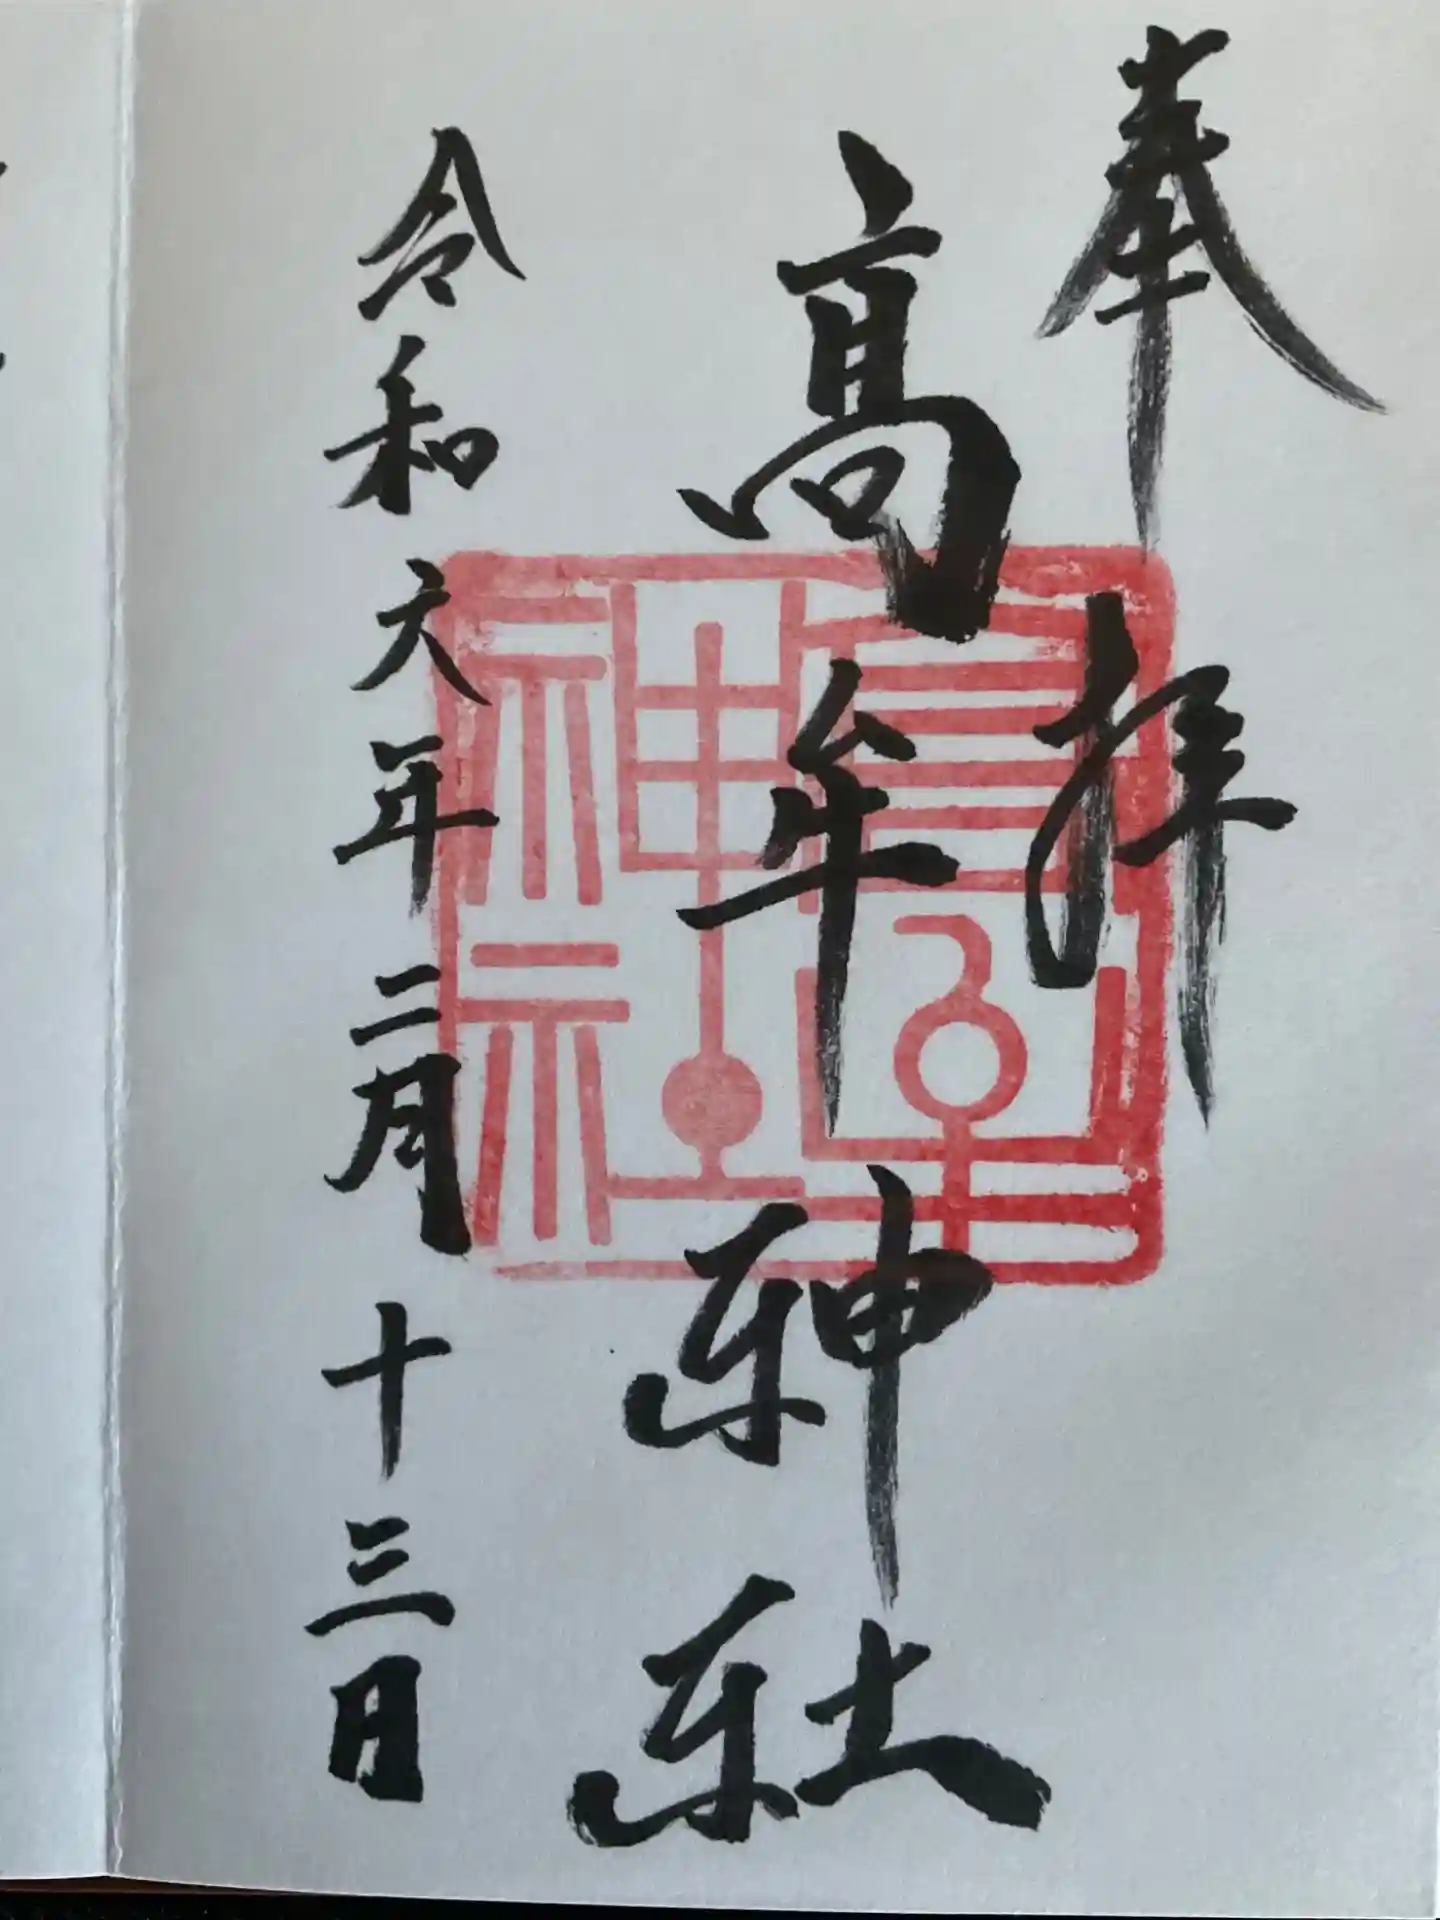 奉拝
髙牟神社
令和六年二月十三日
髙牟神社